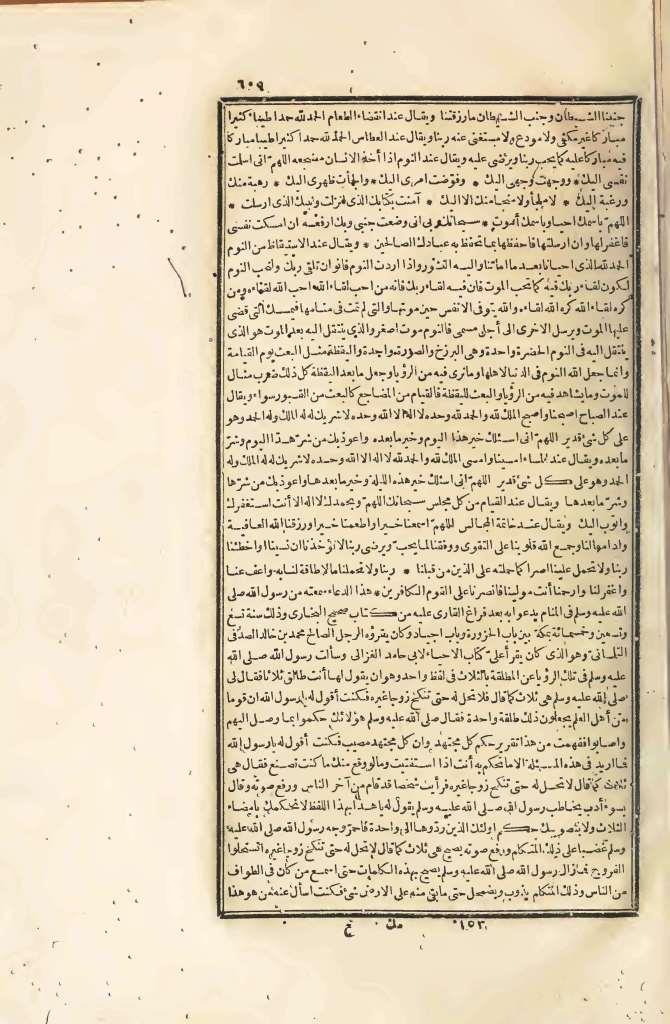 ٦٠٩
جنبنا الشيطان وجنب الشيطان ما رزقتنا ويقال عند انقضاء الطعام الحمد لله حمدا طيبا كثيرا
مباركا غير مكفى ولا مودع ولا مستغنى عنه ربنا ويقال عند العطاس الحمد لله حمدا كثيرا طيبا مباركا
فيه مباركا عليه كما يحب ربنا ويرضى عليه ويقال عند النوم اذا أخذ الانسان مضجعه اللهم انى اسلمت
نفسى اليك * ووجهت وجهى اليك * وفوّضت امرى اليك * وألجأت ظهرى اليك * رهبة منك
ورغبة إليك * لا ملجأ ولا منجا منك الا اليك * آمنت بكتابك الذى انزلت ونبيك الذى ارسلت *
اللهم باسمك احيا وباسمك أموت * سبحانك ربى انى وضعت جنبى وبك ارفعه ان امسكت نفسى
فاغفر لها وان ارسلتها فاحفظها بما تحفظ به عبادك الصالحين * ويقال عند الاستيقاظ من النوم
الحمد لله الذى احيانا بعد ما اماتنا واليه النشور واذا اردت النوم فانو ان تلقى ربك واحب النوم
لكون لقاء ربك فيه كما تحب الموت فان فيه لقاء ربك فانه من احب لقاء الله احب الله لقاءه ومن
كره لقاء الله كره الله لقاءه والله يتوفى الانفس حين موتها والتى لم تمت فى منامها فيمسك التى قضى
عليها الموت ويرسل الاخرى الى أجل مسمى فالنوم موت اصغر والذى ينتقل اليه بعد الموت هو الذى
ينتقل اليه فى النوم الحضرة واحدة وهى البرزخ والصورة واحدة واليقظة مثل البعث يوم القيامة
وانما جعل الله النوم فى الدنيا لاهلها وما ترى فيه من الرؤيا وجعل ما بعد اليقظة كل ذلك ضرب مثال
للموت وما يشاهد فيه من الرؤيا والبعث لليقظة فالقيام من المضاجع كالبعث من القبور سواء ويقال
عند الصباح اصبحنا واصبح الملك لله والحمد لله وحده لا اله الا الله وحده لا شريك له له الملك وله الحمد وهو
على كل شئ قدير اللهم انى اسئلك خير هذا اليوم وخير ما بعده واعوذ بك من شر هذا اليوم وشرّ
ما بعده ويقال عند المساء امسينا وامسى الملك لله والحمد لله لا اله الا الله وحده لا شريك له له الملك وله
الحمد وهو على كل شئ قدير اللهم انى اسئلك خير هذه الليلة وخير ما بعدها واعوذ بك من شرّها
وشرّ ما بعدها ويقال عند القيام من كل مجلس سبحانك اللهم وبحمدك لا اله الا أنت استغفرك
واتوب اليك ويقال عند خاتمة المجالس اللهم اسمعنا خيرا واطعمنا خيرا ورزقنا الله العافية
وادامها لنا وجمع الله قلوبنا على التقوى ووفقنا لما يحب ويرضى ربنا لا تؤاخذنا ان نسينا او اخطئنا
ربنا ولا تحمل علينا اصرا كما حملته على الذين من قبلنا * ربنا ولا تحملنا ما لا طاقة لنا به واعف عنا
واغفر لنا وارحمنا أنت مولينا فانصرنا على القوم الكافرين * هذا الدعاء سمعته من رسول الله صلى
الله عليه وسلم فى المنام يدعو به بعد فراغ القارى عليه من كتاب صحيح البخارى وذلك سنة تسع
وتسعين وخمسمائة بمكة بين باب الحزورة وباب اجياد وكان يقرؤه الرجل الصالح محمد بن خالد الصدفى
التلمسانى وهو الذى كان يقرأ علىّ كتاب الاحياء لابى حامد الغزالى وسألت رسول الله صلى الله
عليه وسلم فى تلك الرؤيا عن المطلقة بالثلاث فى لفظ واحد وهو ان يقول لها أنت طالق ثلاثا فقال لى
صلى الله عليه وسلم هى ثلاث كما قال فلا تحل له حتى تنكح زوجا غيره فكنت أقول له يا رسول الله ان قوما
من أهل العلم يجعلون ذلك طلقة واحدة فقال صلى الله عليه وسلم هؤلائك حكموا بما وصل اليهم
واصابوا ففهمت من هذا تقرير حكم كل مجتهد وان كل مجتهد مصيب فكنت أقول له يا رسول الله
فما اريد فى هذه المسئلة الا ما تحكم به أنت اذا استفتيت وما لو وقع منك ما كنت تصنع فقال هى
ثلاث كما قال لا تحل له حتى تنكح زوجا غيره فرأيت شخصا قد قام من آخر الناس ورفع صوته وقال
بسوء أدب يخاطب رسول الله صلى الله عليه وسلم يقول له يا هذا بهذا اللفظ لا نحكمك بامضاء
الثلاث ولا بتصويبك حكم اولئك الذين ردّوها الى واحدة فاحمرّ وجه رسول الله صلى الله عليه
وسلم غضبا على ذلك المتكلم ورفع صوته يصيح هى ثلاث كما قال لا تحل له حتى تنكح زوجا غيره تستحلوا
الفروج فما زال رسول الله صلى الله عليه وسلم يصيح بهذه الكلمات حتى اسمع من كان فى الطواف
من الناس وذلك المتكلم يذوب ويضمحل حتى ما بقى منه على الارض شئ فكنت اسأل عنه من هو هذا
١٥٣ مك خ